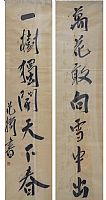 萬花敢向雪中出
一樹獨開天下春
書